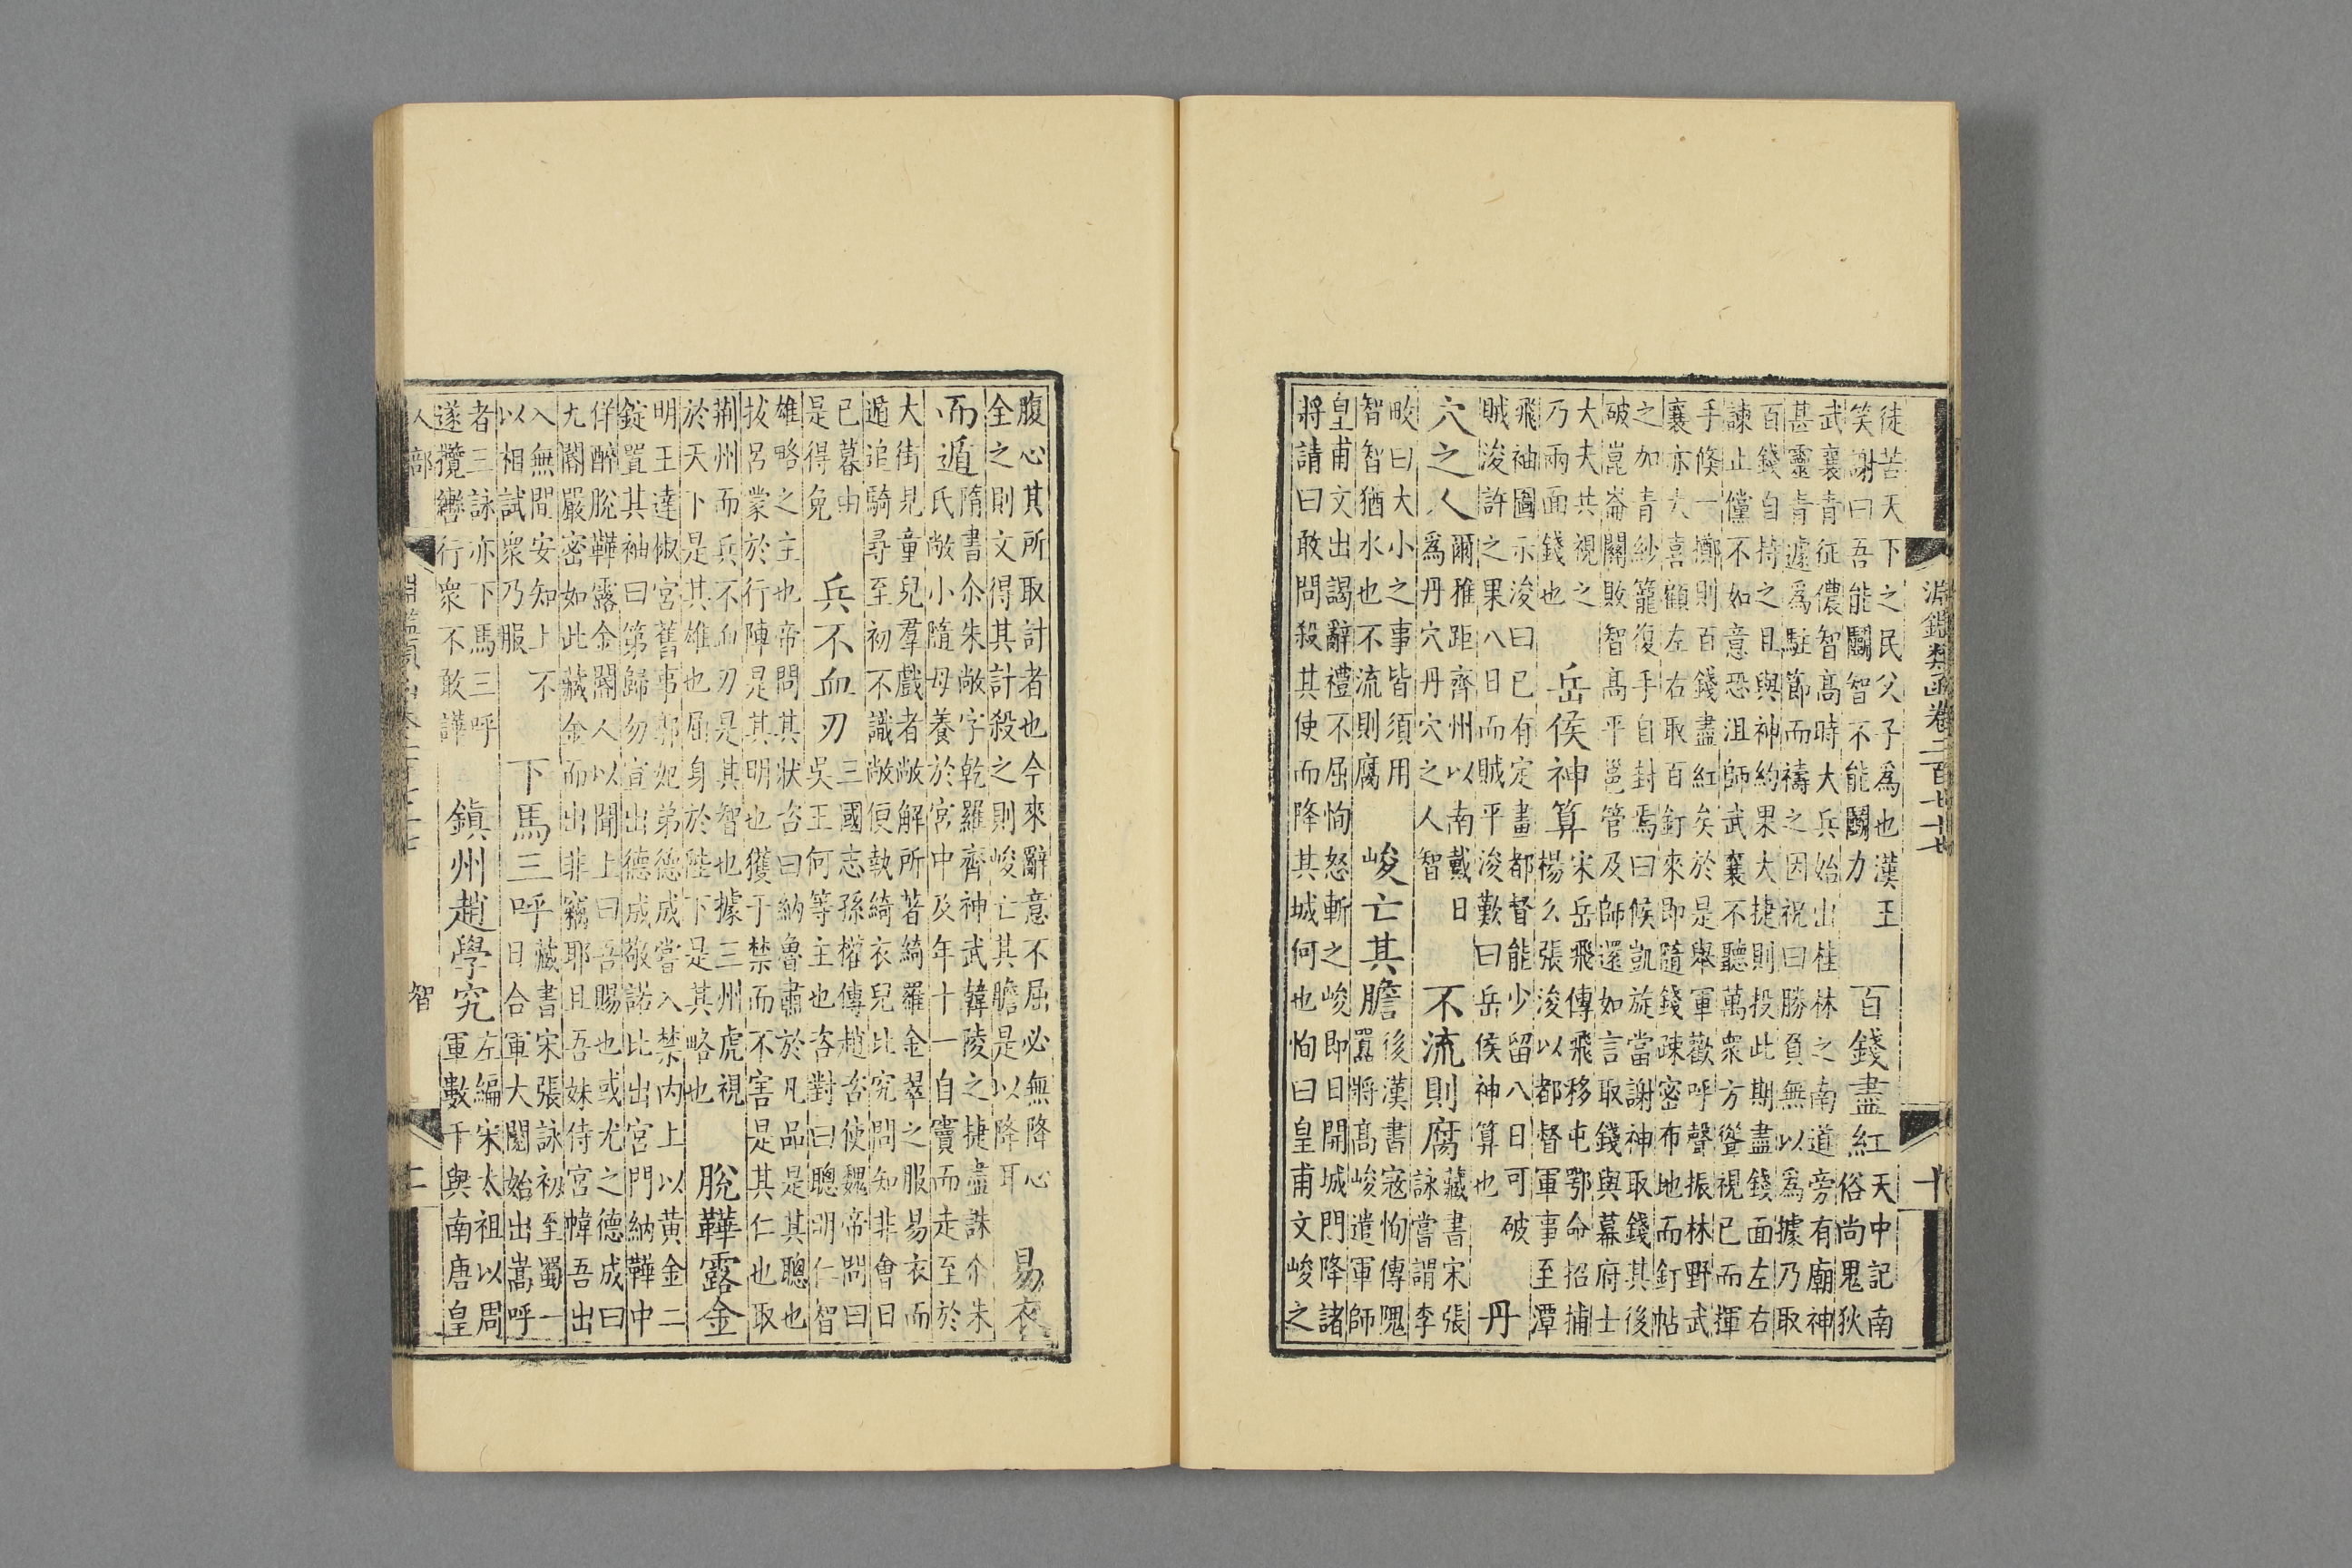 淵鑑類函卷二百七十七　十
徒苦天下之民父子為也漢王
笑謝曰吾能鬭智不能鬭力
百錢盡紅
天中記南
俗尚鬼狄
武襄青征儂智高時大兵始出桂林之南道旁有廟神
甚靈青遽為駐節而禱之因祝曰勝負無以為據乃取
百錢自持之且與神約果大捷則投此期盡錢面左右
諫止儻不如意恐沮師武襄不聽萬衆方聳視已而揮
手倏一擲則百錢盡紅矣於是舉軍歡呼聲振林野武
襄亦大喜顧左右取百釘來即隨錢疎密布地而釘帖
之加青紗籠復手自封焉曰候凱旋當謝神取錢其後
破崑崙關敗智高平邕管及師還如言取錢與幕府士
大夫共視之
乃兩面錢也
岳侯神算
宋岳飛傳飛移屯鄂命招捕
楊么張浚以都督軍事至潭
飛袖圖示浚曰已有定畫都督能少留八日可破
賊浚許之果八日而賊平浚歎曰岳侯神算也
丹
穴之人
爾雅距齊州以南戴日
為丹穴丹穴之人智
不流則腐
藏書宋張
詠嘗謂李
畋曰大小之事皆須用
智智猶水也不流則腐
峻亡其膽
後漢書寇恂傳隗
囂將高峻遣軍師
皇甫文出謁辭禮不屈恂怒斬之峻即日開城門降諸
將請曰敢問殺其使而降其城何也恂曰皇甫文峻之
腹心其所取計者也今來辭意不屈必無降心
全之則文得其計殺之則峻亡其膽是以降耳
易衣
而遁
隋書尒朱敞字乾羅齊神武韓陵之捷盡誅尒朱
氏敞小隨母養於宮中及年十一自竇而走至於
大街見童兒羣戲者敞解所著綺羅金翠之服易衣而
遁追騎尋至初不識敞便執綺衣兒比究問知非會日
已暮由
是得免
兵不血刃
三國志孫權傳趙咨使魏帝問曰
吳王何等主也咨對曰聰明仁智
雄略之主也帝問其狀咨曰納魯肅於凡品是其聰也
拔呂蒙於行陣是其明也獲于禁而不害是其仁也取
荆州而兵不血刃是其智也據三州虎視
於天下是其雄也屈身於陛下是其略也
脫鞾露金
明王達椒宮舊事郭妃弟德成嘗入禁内上以黃金二
錠置其袖曰第歸勿宣出德成敬諾比出宮門納鞾中
佯醉脫鞾露金閽人以聞上曰吾賜也或尤之德成曰
九閽嚴密如此藏金而出非竊耶且吾妹侍宮幃吾出
入無間安知上不
以相試衆乃服
下馬三呼
藏書宋張詠初至蜀一
日合軍大閱始出嵩呼
者三詠亦下馬三呼
遂攬轡行衆不敢譁
鎮州趙學究
左編宋太祖以周
軍數千與南唐皇
人部　智